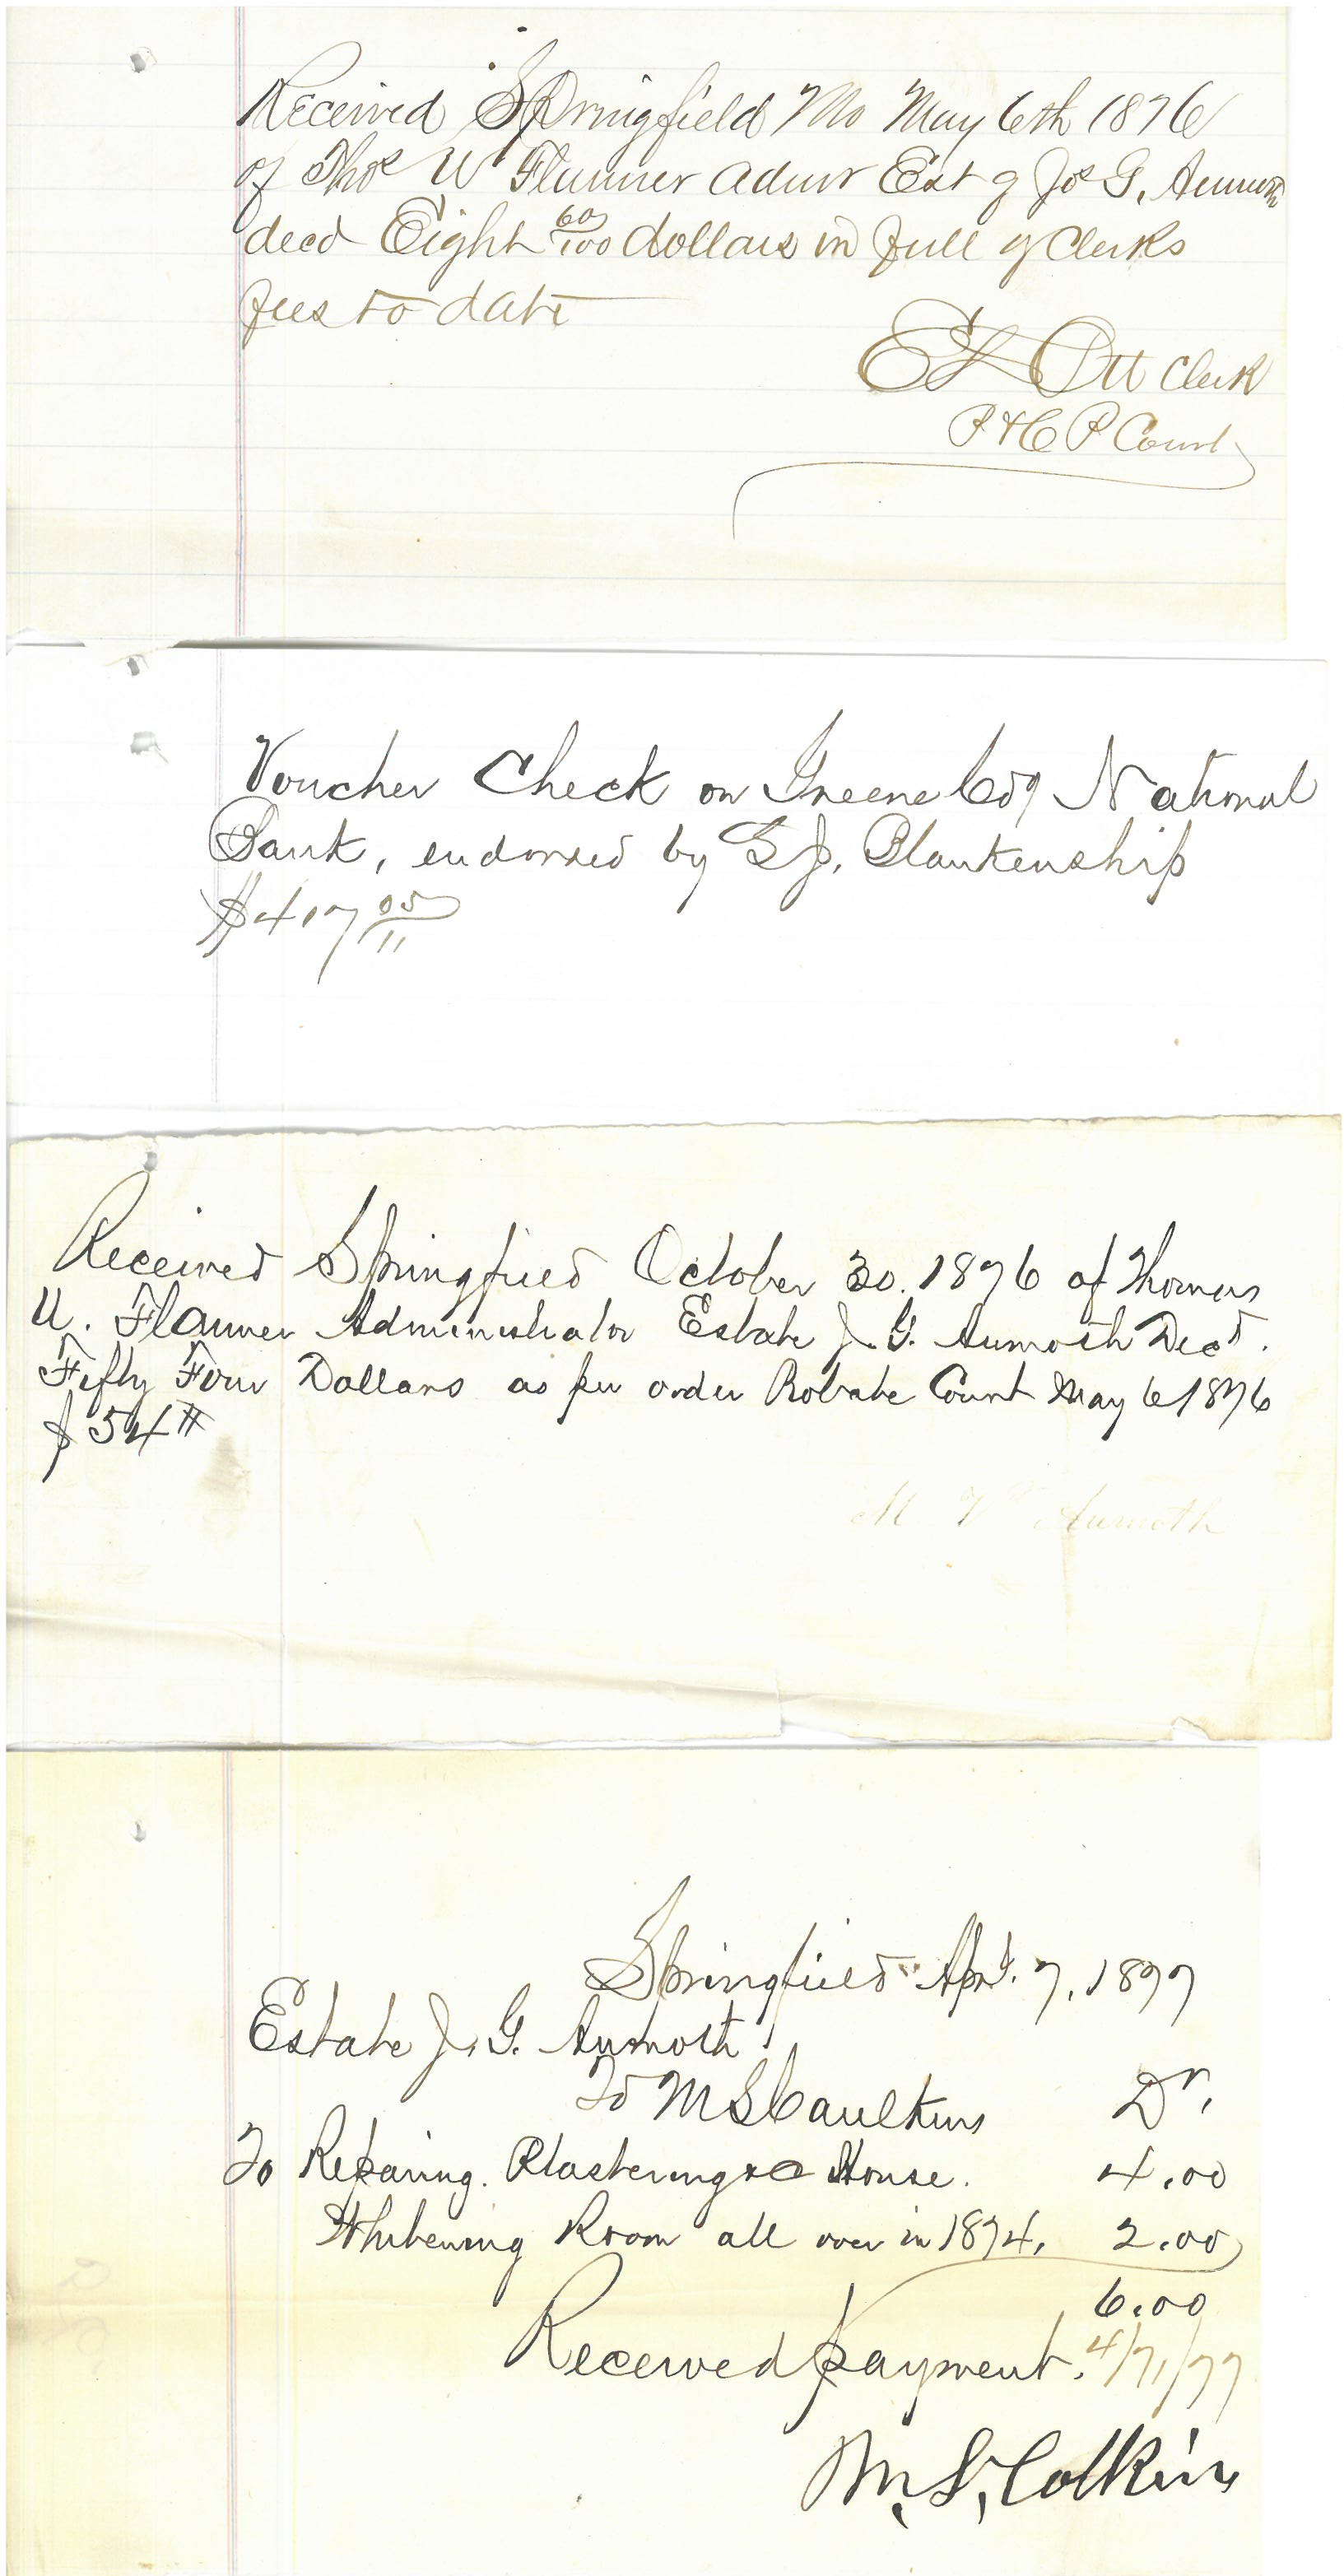 Received Springfield Mo May 6th 1876
of Thos W Flanner Admr Est of Jos G. Aumoth
decd Eight 60/100 dollars in full of Clerks
fees to date
E L Ott Clerk
P & C P Court
Voucher Check on Greene Coy National
Bank, endorsed by G J. Blankenship
$417 05/11
Received Springfield October 30. 1876 of Thomas
U. Flanner Administrator Estate J. G. Aumoth Decd.
Fifty Four Dollars as per order Probate Court May 6 1876
$54 #
M V Aumoth
Springfield Apl. 7, 1877
Estate J. G. Aumoth
To M S Caulkins Dr.
To Reparing. Plastering &c House. 4.00
Whitening Room all over in 1874. 2.00
6.00
Received payment. 4/7/77
M. S. Colkins